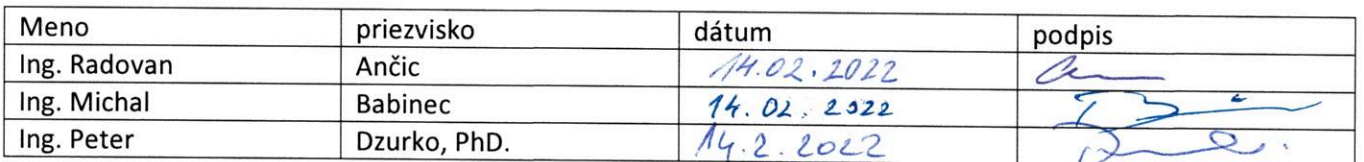 Meno priezvisko dátum podpis
Ing. Radovan Ančic 14.02.2022
Ing. Michal Babinec 14.02.2022
Ing. Peter Dzurko, PhD. 14.2.2022